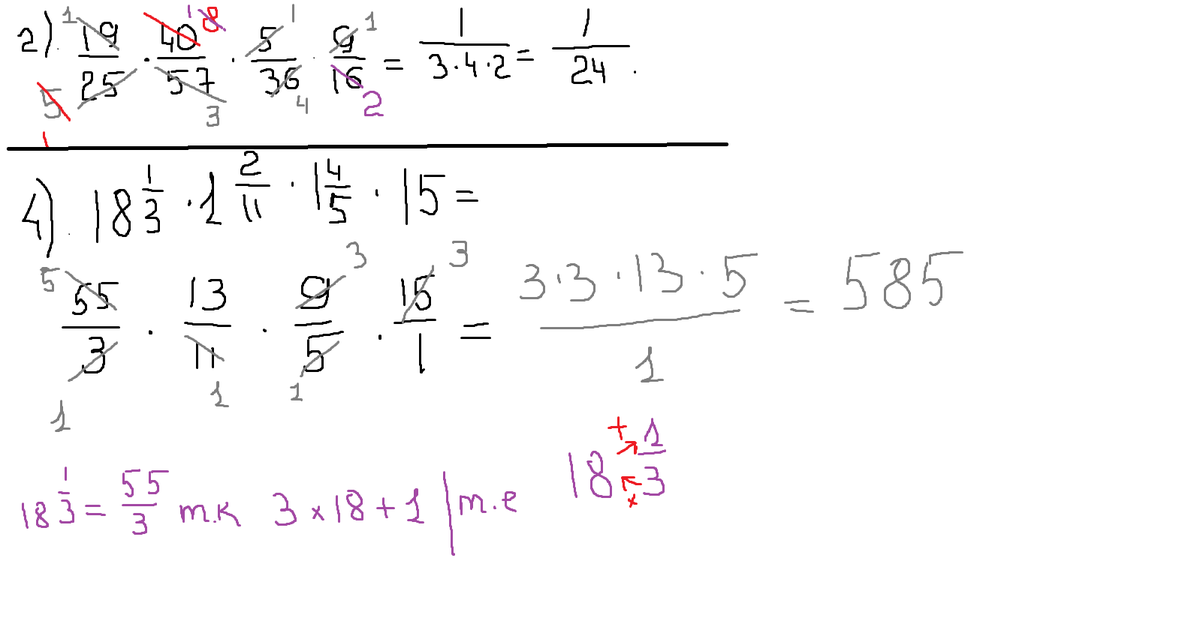 2). 19/25 · 40/57 · 5/36 · 9/16 = 1/(3·4·2) = 1/24.
1 1 8 1 1
5 3 4 2
1
4). 18 1/3 · 1 2/11 · 1 4/5 · 15 =
5 3 3
55/3 · 13/11 · 9/5 · 15/1 = (3·3·13·5)/1 = 585
1 1 1
18 1/3 = 55/3 т.к 3 × 18 + 1 | т.е 18 + 1/3 ×